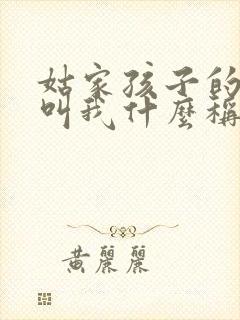 姑家孩子的
叫我什麼稱
黃麗麗